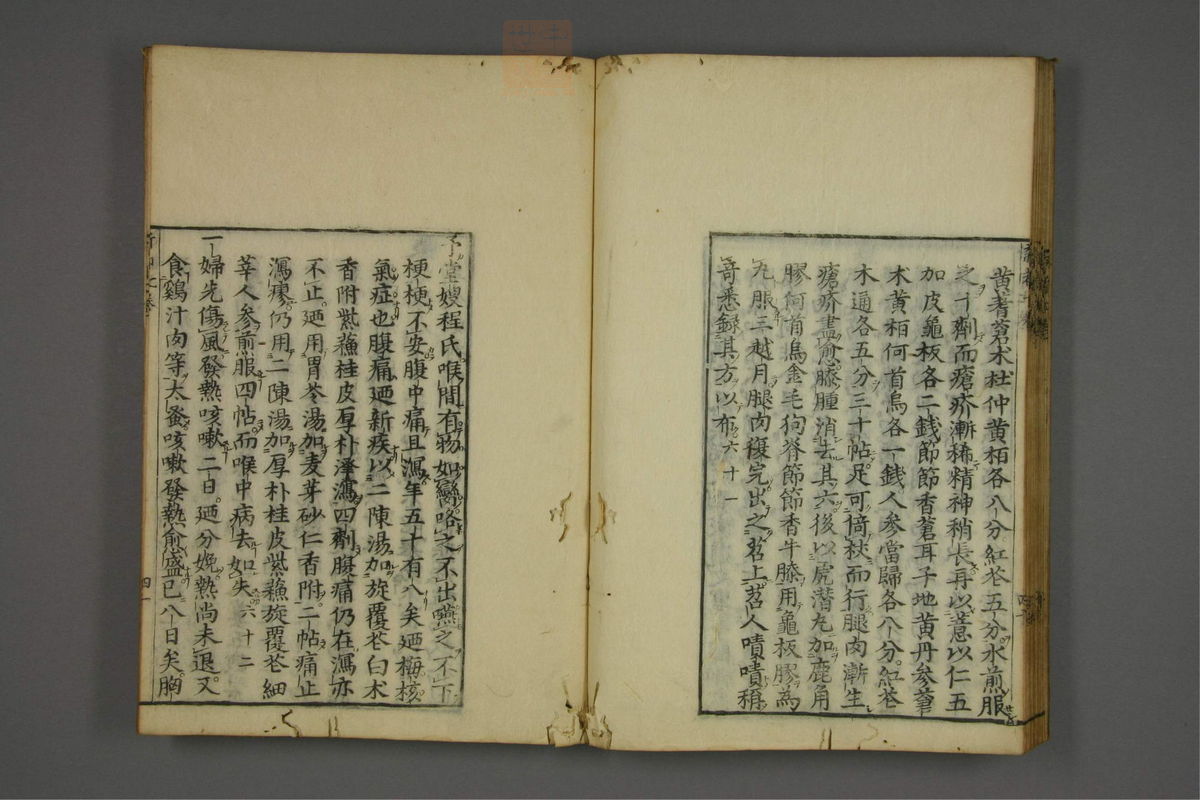 黄耆蒼术杜仲黄栢各八分紅花五分水煎服
之十劑而瘡疥漸稀精神稍長再以薏以仁五
加皮龜板各二錢節節香蒼耳子地黄丹參草
木黄栢何首烏各一錢人參當歸各八分紅花
木通各五分三十帖足可倚杖而行腿肉漸生
瘡疥盡愈膝腫消去其六後以虎潛丸加鹿角
膠何首烏金毛狗脊節節香牛膝用龜板膠為
丸服三越月腿肉復完出之苕上苕人嘖嘖稱
奇悉録其方以布六十一
予堂嫂程氏喉間有物如臠咯之不出嚥之不下
梗梗不安腹中痛且瀉年五十有八矣廼梅核
氣症也腹痛廼新疾以二陳湯加旋覆花白术
香附紫蘓桂皮厚朴澤瀉四劑腹痛仍在瀉亦
不止廼用胃苓湯加麦芽砂仁香附二帖痛止
瀉瘳仍用二陳湯加厚朴桂皮紫蘓旋覆花細
莘人參煎服四帖而喉中病去如失六十二
一婦先傷風發熱咳嗽二日廼分娩熱尚未退又
食鷄汁肉等太蚤咳嗽發熱愈盛已八日矣胸